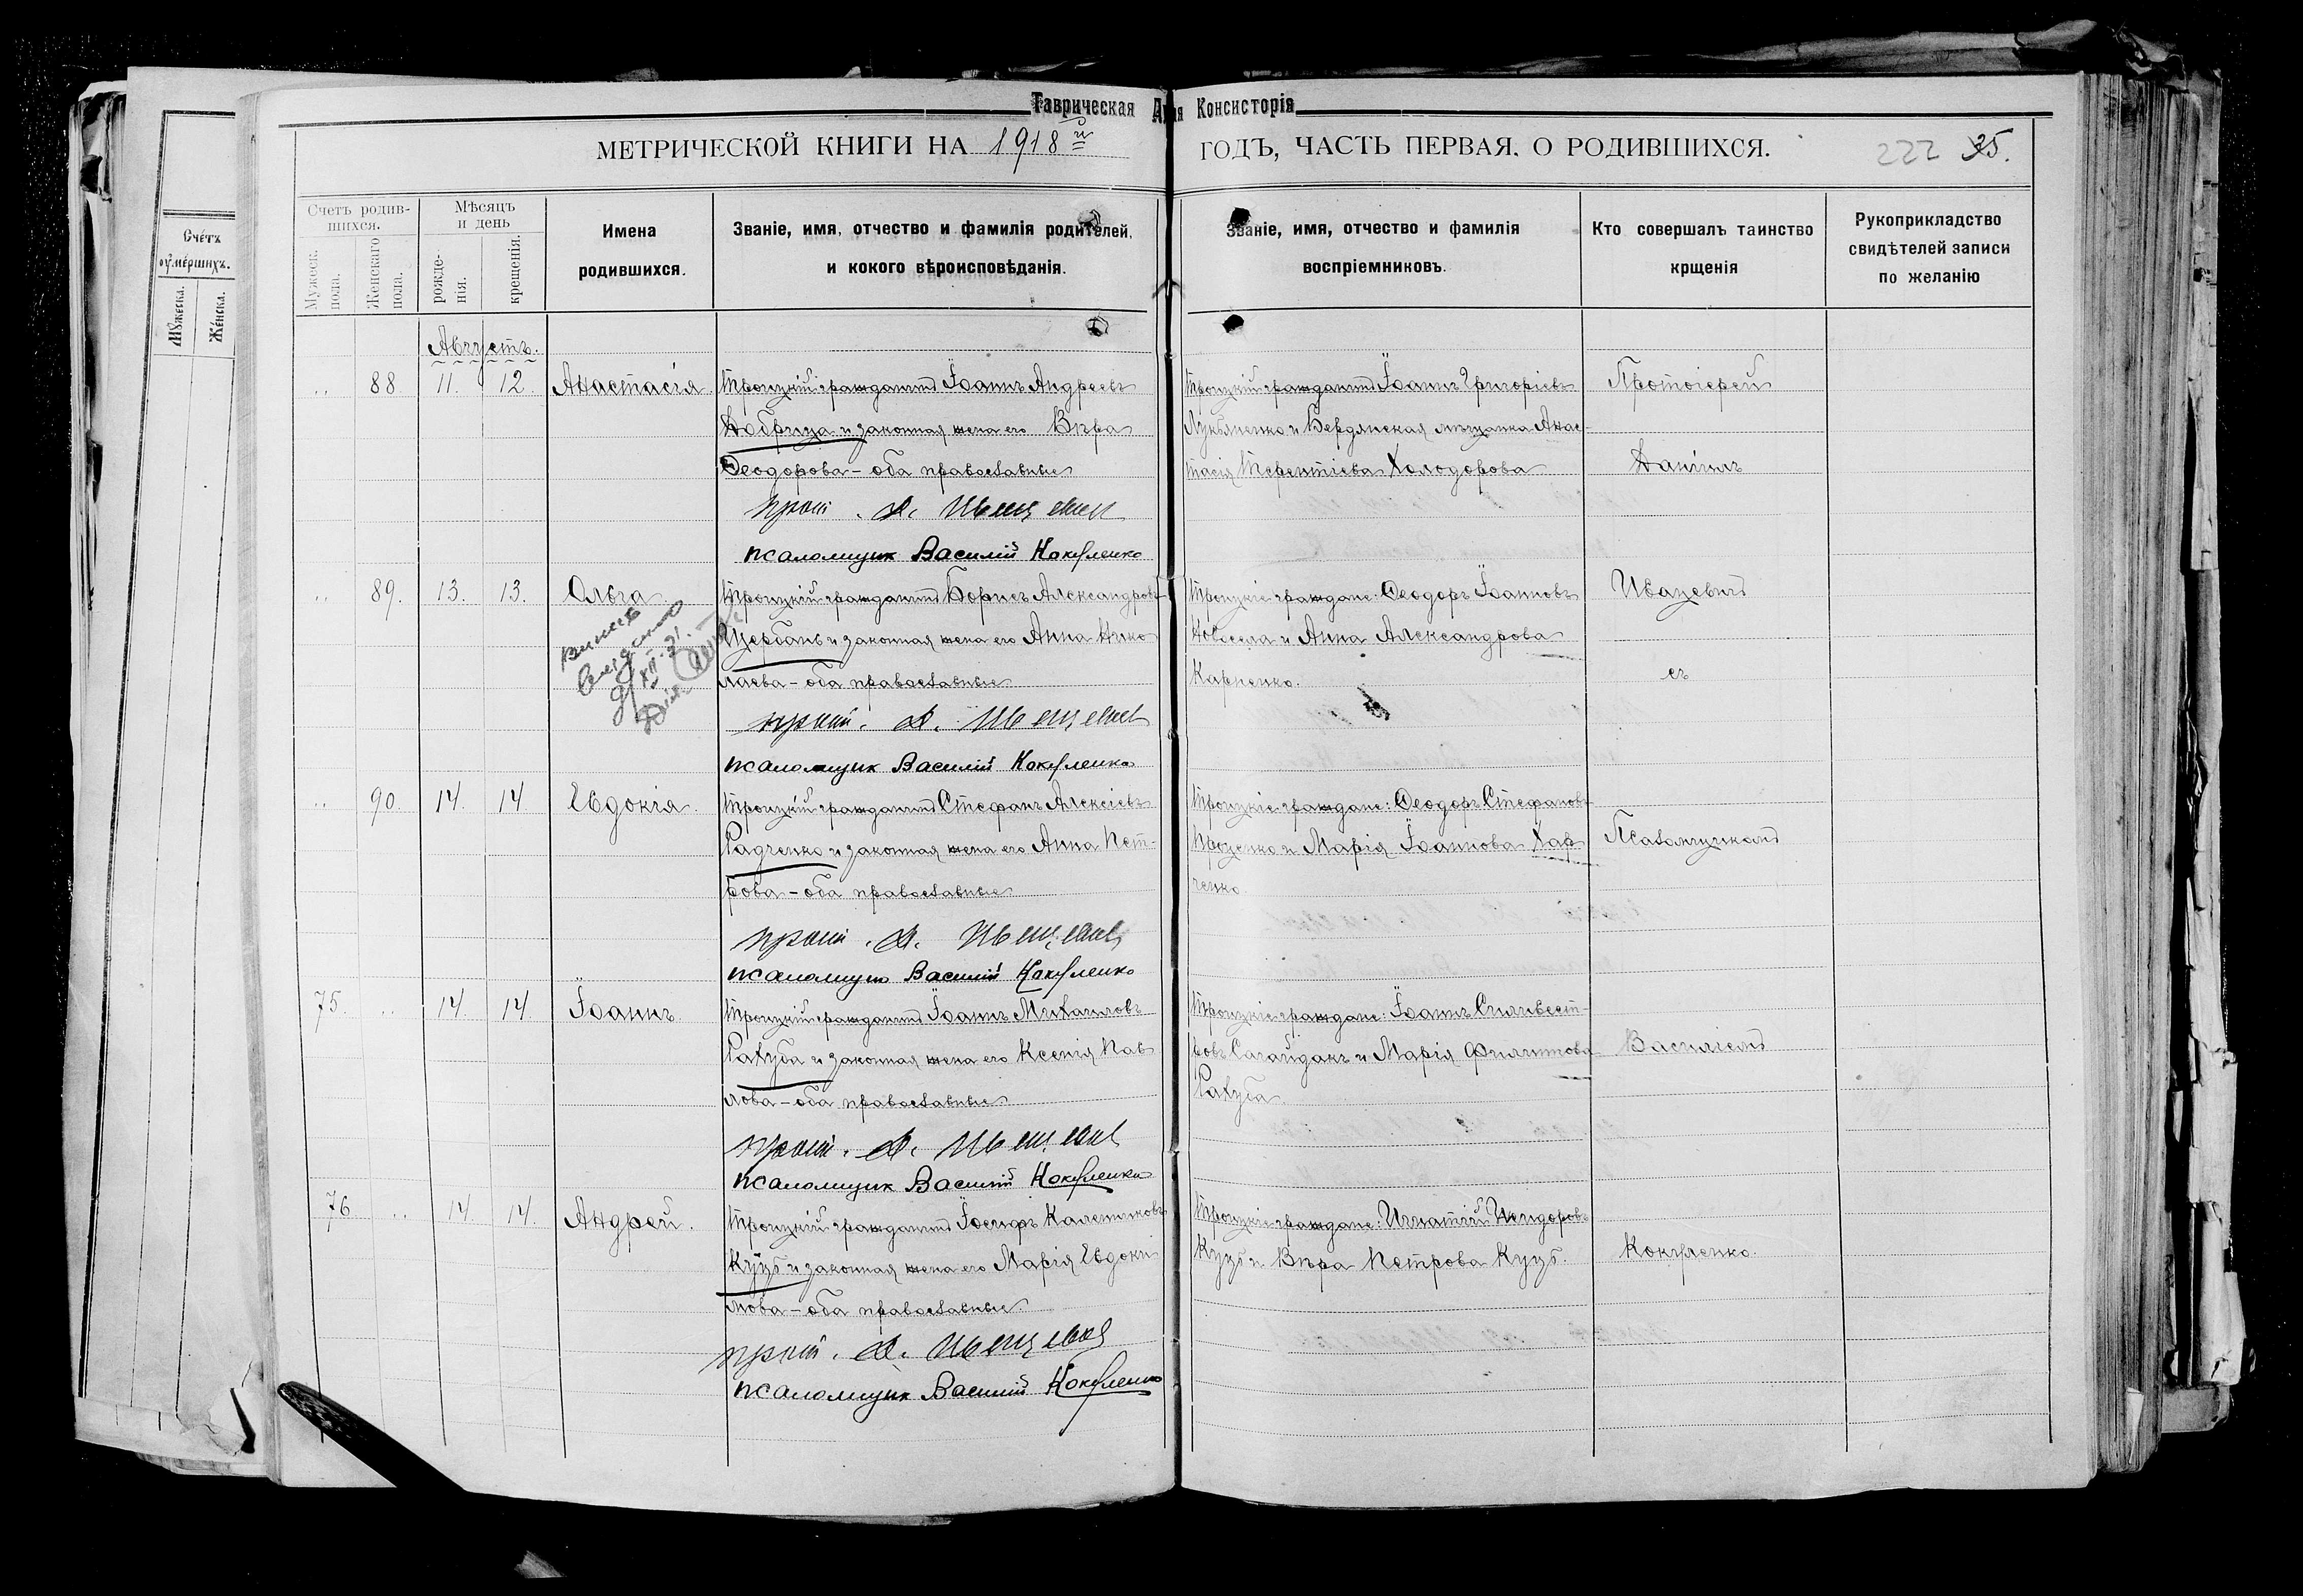 Таврическая Д ая Консисторія
МЕТРИЧЕСКОЙ КНИГИ НА 1918й
ГОДЪ, ЧАСТЬ ПЕРВАЯ, О РОДИВШИХСЯ.
222 35.
Счéтъ
ѹмéршихъ.
Мꙋжеска.
Жéнска.
Счетъ родив-
шихся.
Мужеск. пола.
Женскаго пола.
Мѣсяцъ
и день
рожде-
нія.
крещенія.
Имена
родившихся.
Званіе, имя, отчество и фамилія родителей,
и кокого вѣроисповѣданія.
Званіе, имя, отчество и фамилія
воспріемниковъ.
Кто совершалъ таинство
крщенія
Рукоприкладство
свидѣтелей записи
по желанію
Августъ.
„ 88. 11. 12. Анастасія.
Троицкій гражданинъ Іоаннъ Андреевъ
Добрица и законная жена его Вѣра
Ѳеодорова – оба православные
прот. Д. Ивацевич
псаломщик Василій Кокуленко
Троицкій гражданинъ Іоаннъ Григоріевъ
Лукьяненко и Бердянская мѣщанка Анас-
тасія Терентіева Холодорова
Протоіерей
Даніилъ
„ 89. 13. 13. Ольга.
Троицкій гражданинъ Борисъ Александровъ
Щербань и законная жена его Анна Нико-
лаева – оба православные
прот. Д. Ивацевич
псаломщик Василій Кокуленко
Троицкіе граждане: Ѳеодоръ Іоанновъ
Новосела и Анна Александрова
Карпенко.
Ивацевичъ
съ
„ 90. 14. 14. Евдокія.
Троицкій гражданинъ Стефанъ Алексіевъ
Радченко и законная жена его Анна Пет-
рова – оба православные
прот. Д. Ивацевич
псаломщик Василій Кокуленко
Троицкіе граждане: Ѳеодоръ Стефановъ
Проценко и Марія Іоаннова Хар-
ченко
Псаломщикомъ
75. „ 14. 14. Іоаннъ.
Троицкій гражданинъ Іоаннъ Михаиловъ
Рахуба и законная жена его Ксенія Пав-
лова – оба православные
прот. Д. Ивацевич
псаломщик Василій Кокуленко
Троицкіе граждане: Іоаннъ Сильвест-
ровъ Сагайдакъ и Марія Филиппова
Рахуба.
Василіемъ
76 „ 14. 14. Андрей.
Троицкій гражданинъ Іосифъ Калениковъ
Куцъ и законная жена его Марія Евдоки-
мова – оба православные.
прот. Д. Ивацевич
псаломщик Василій Кокуленко
Троицкіе граждане: Игнатій Исидоровъ
Куцъ и Вѣра Петрова Куцъ.
Кокуленко.